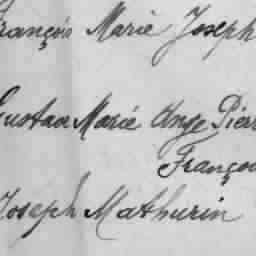 François Marie Joseph
Gustav Marie Ange Pierr
Françoi
Joseph Mathurin